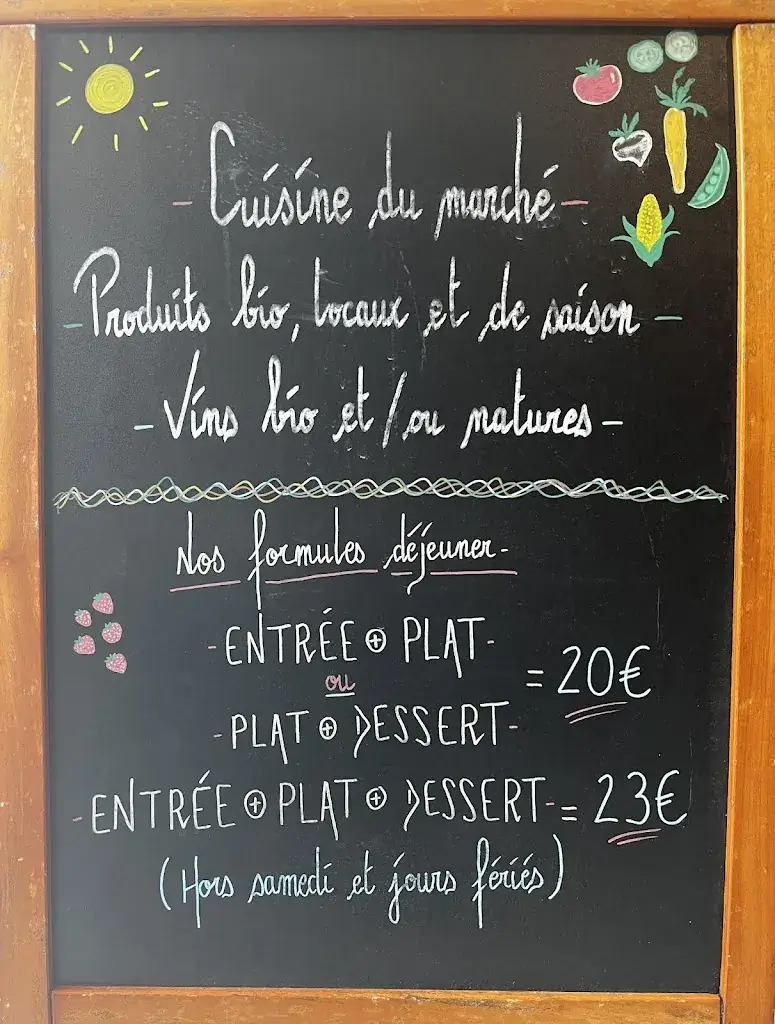 - Cuisine du marché -
- Produits bio, locaux et de saison -
- Vins bio et/ou natures -
Nos formules déjeuner -
- ENTRÉE + PLAT -
ou
= 20€
- PLAT + DESSERT -
- ENTRÉE + PLAT + DESSERT - = 23€
(Hors samedi et jours fériés)